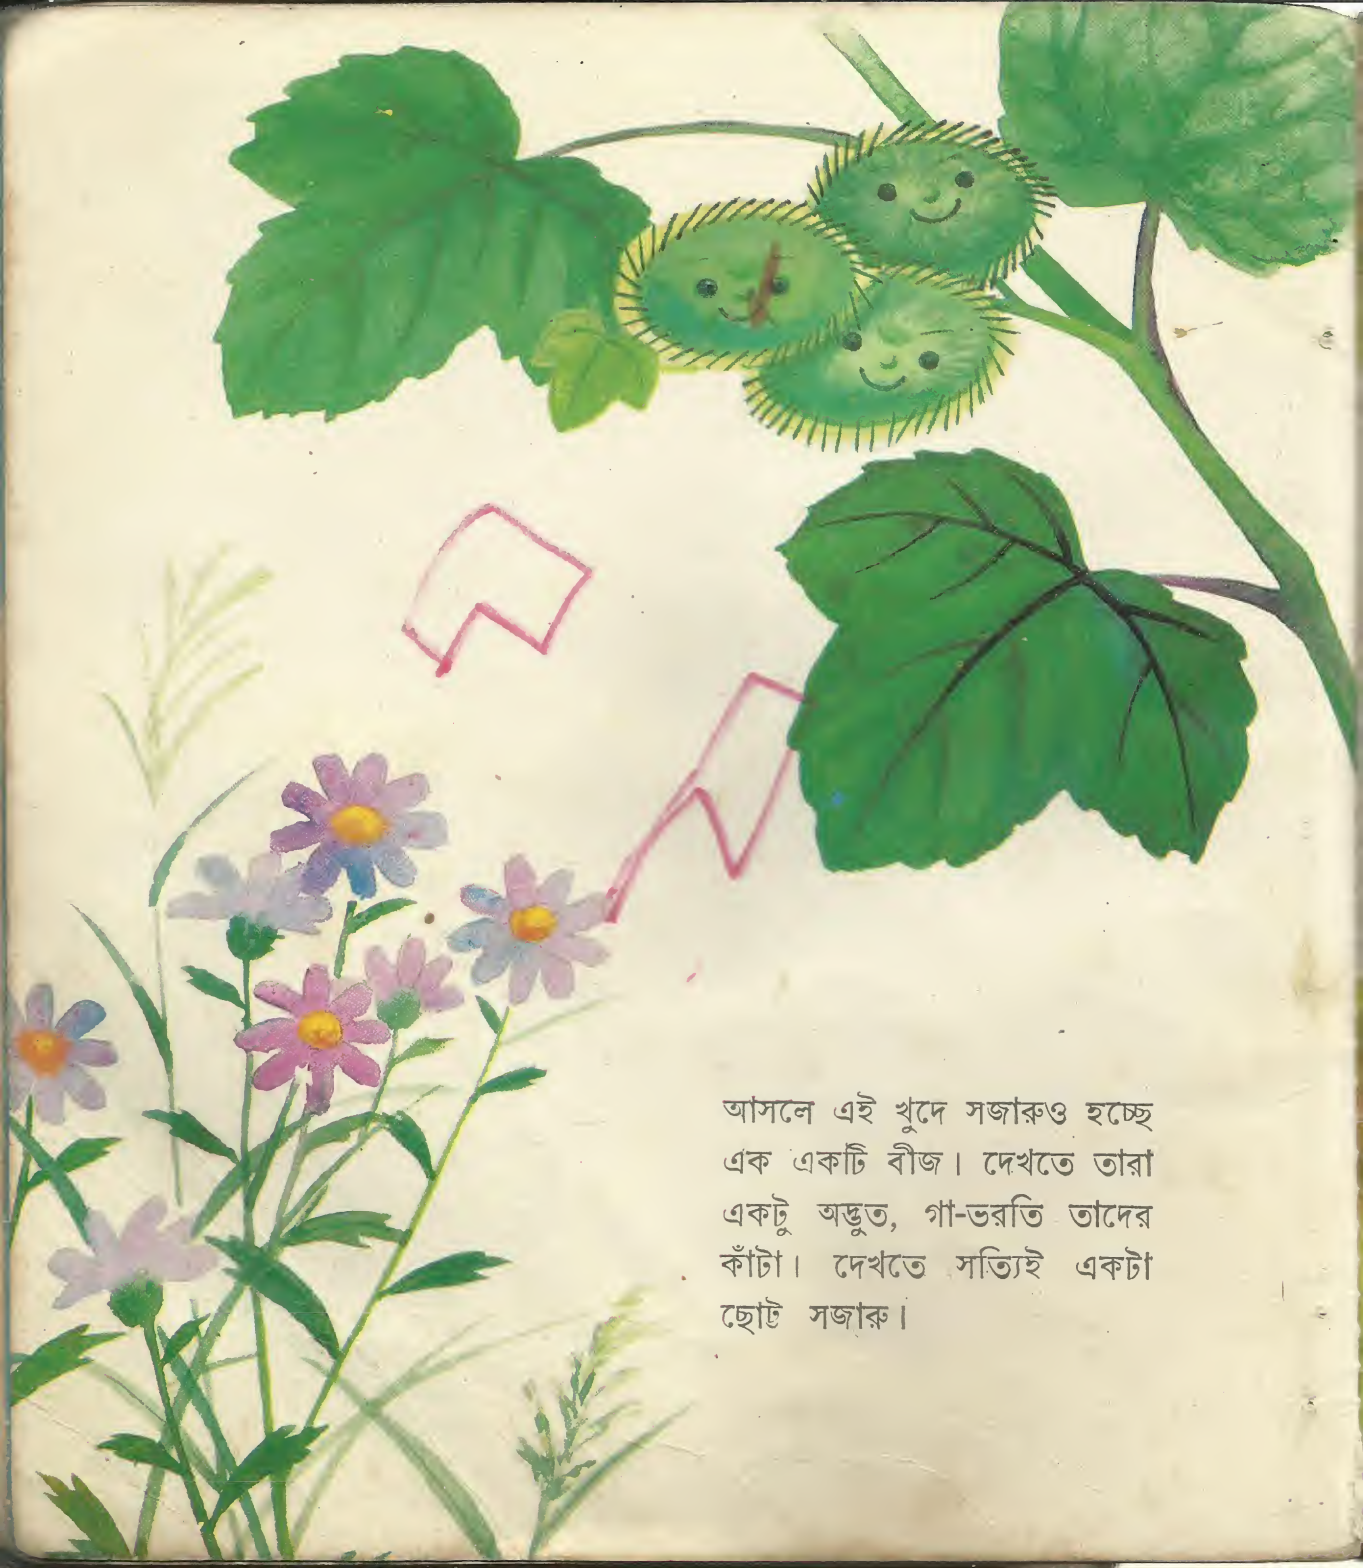 আসলে এই খুদে সজারুও হচ্ছে
এক একটি বীজ। দেখতে তারা
একটু অদ্ভুত, গা-ভরতি তাদের
কাঁটা। দেখতে সত্যিই একটা
ছোট্ট সজারু।